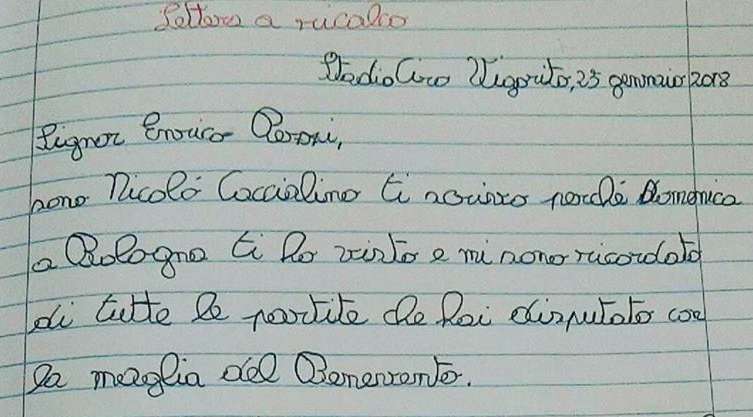 Lettera a ricalco
Stadio Ciro Vigorito, 25 gennaio 2018
Signor Enrico
sono Nicolò Caccialino ti scrivo perché Domenica
a Bologna ti ho visto e mi sono ricordato
di tutte le partite che hai disputato con
la maglia del Benevento.